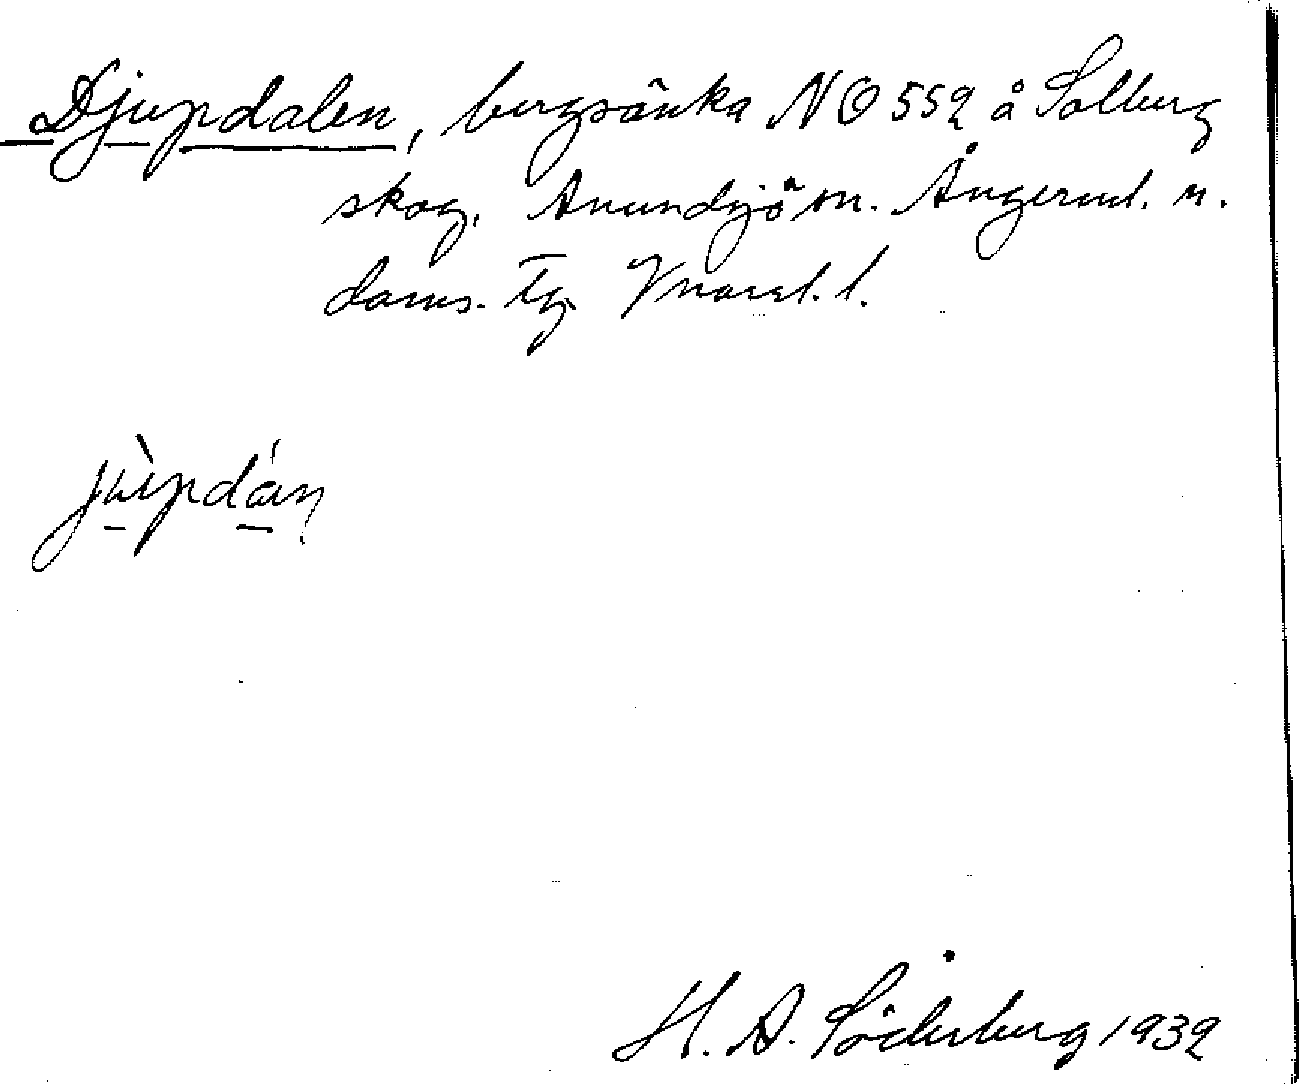 Djupdalen, bergsänka NO 552 å Solberg
skog. Anundsjö sn. Ångerml. n.
doms. Tg. Vnorrl. l.
jùpdán
H. A. Söderberg 1932